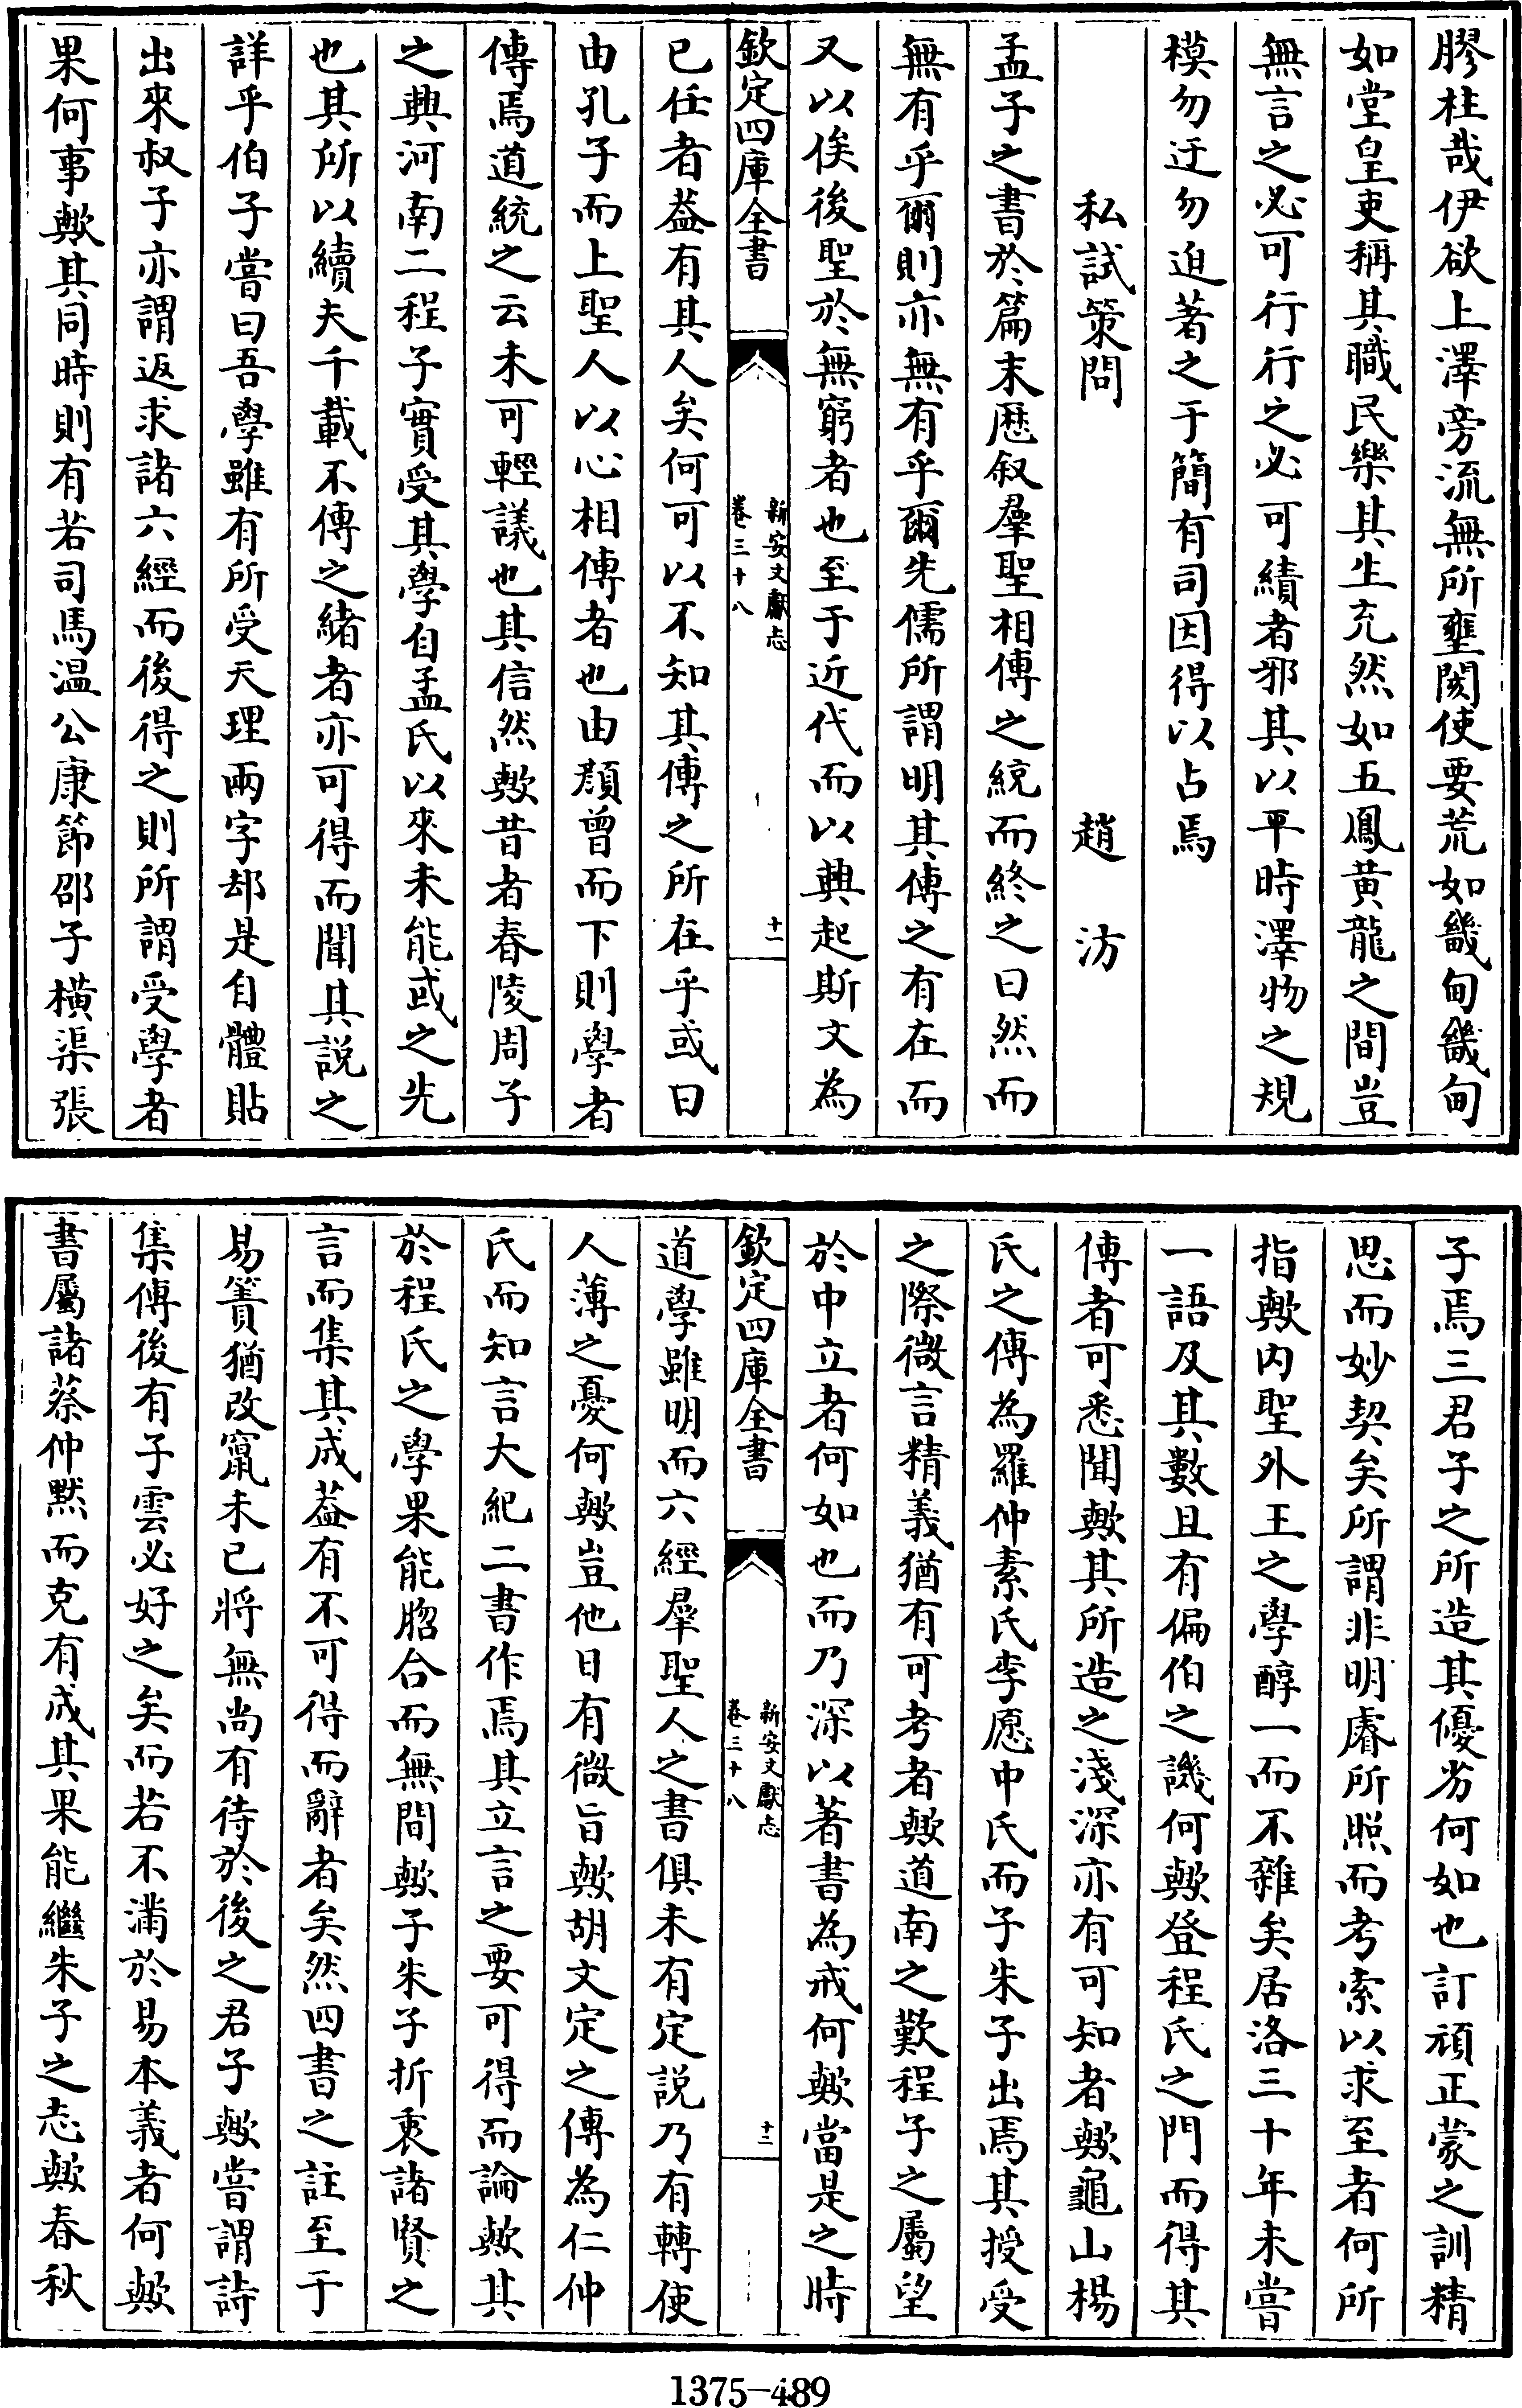 膠柱哉伊欲上澤旁流無所壅閼使要荒如畿甸畿甸
如堂皇吏稱其職民樂其生充然如五鳳黄龍之間豈
無言之必可行行之必可績者邪其以平時澤物之規
模勿迂勿迫著之于簡有司因得以占焉
私試策問 趙汸
孟子之書於篇末歴叙羣聖相傳之統而終之曰然而
無有乎爾則亦無有乎爾先儒所謂明其傳之有在而
又以俟後聖於無窮者也至于近代而以興起斯文為
欽定四庫全書 新安文獻志 卷三十八 十一
已任者葢有其人矣何可以不知其傳之所在乎或曰
由孔子而上聖人以心相傳者也由顔曾而下則學者
傳焉道統之云未可輕議也其信然歟昔者春陵周子
之興河南二程子實受其學自孟氏以來未能或之先
也其所以續夫千載不傳之緒者亦可得而聞其説之
詳乎伯子嘗曰吾學雖有所受天理兩字却是自體貼
出來叔子亦謂返求諸六經而後得之則所謂受學者
果何事歟其同時則有若司馬温公康節邵子横渠張
子焉三君子之所造其優劣何如也訂頑正蒙之訓精
思而妙契矣所謂非明睿所照而考索以求至者何所
指歟内聖外王之學醇一而不雜矣居洛三十年未嘗
一語及其數且有偏伯之譏何歟登程氏之門而得其
傳者可悉聞歟其所造之淺深亦有可知者歟龜山楊
氏之傳為羅仲素氏李愿中氏而子朱子出焉其授受
之際微言精義猶有可考者歟道南之歎程子之屬望
於中立者何如也而乃深以著書為戒何歟當是之時
欽定四庫全書 新安文獻志 卷三十八 十二
道學雖明而六經羣聖人之書俱未有定説乃有轉使
人薄之憂何歟豈他日有微旨歟胡文定之傳為仁仲
氏而知言大紀二書作焉其立言之要可得而論歟其
於程氏之學果能脗合而無間歟子朱子折衷諸賢之
言而集其成葢有不可得而辭者矣然四書之註至于
易簀猶改竄未已將無尚有待於後之君子歟嘗謂詩
集傳後有子雲必好之矣而若不滿於易本義者何歟
書屬諸蔡仲黙而克有成其果能繼朱子之志歟春秋
1375-489